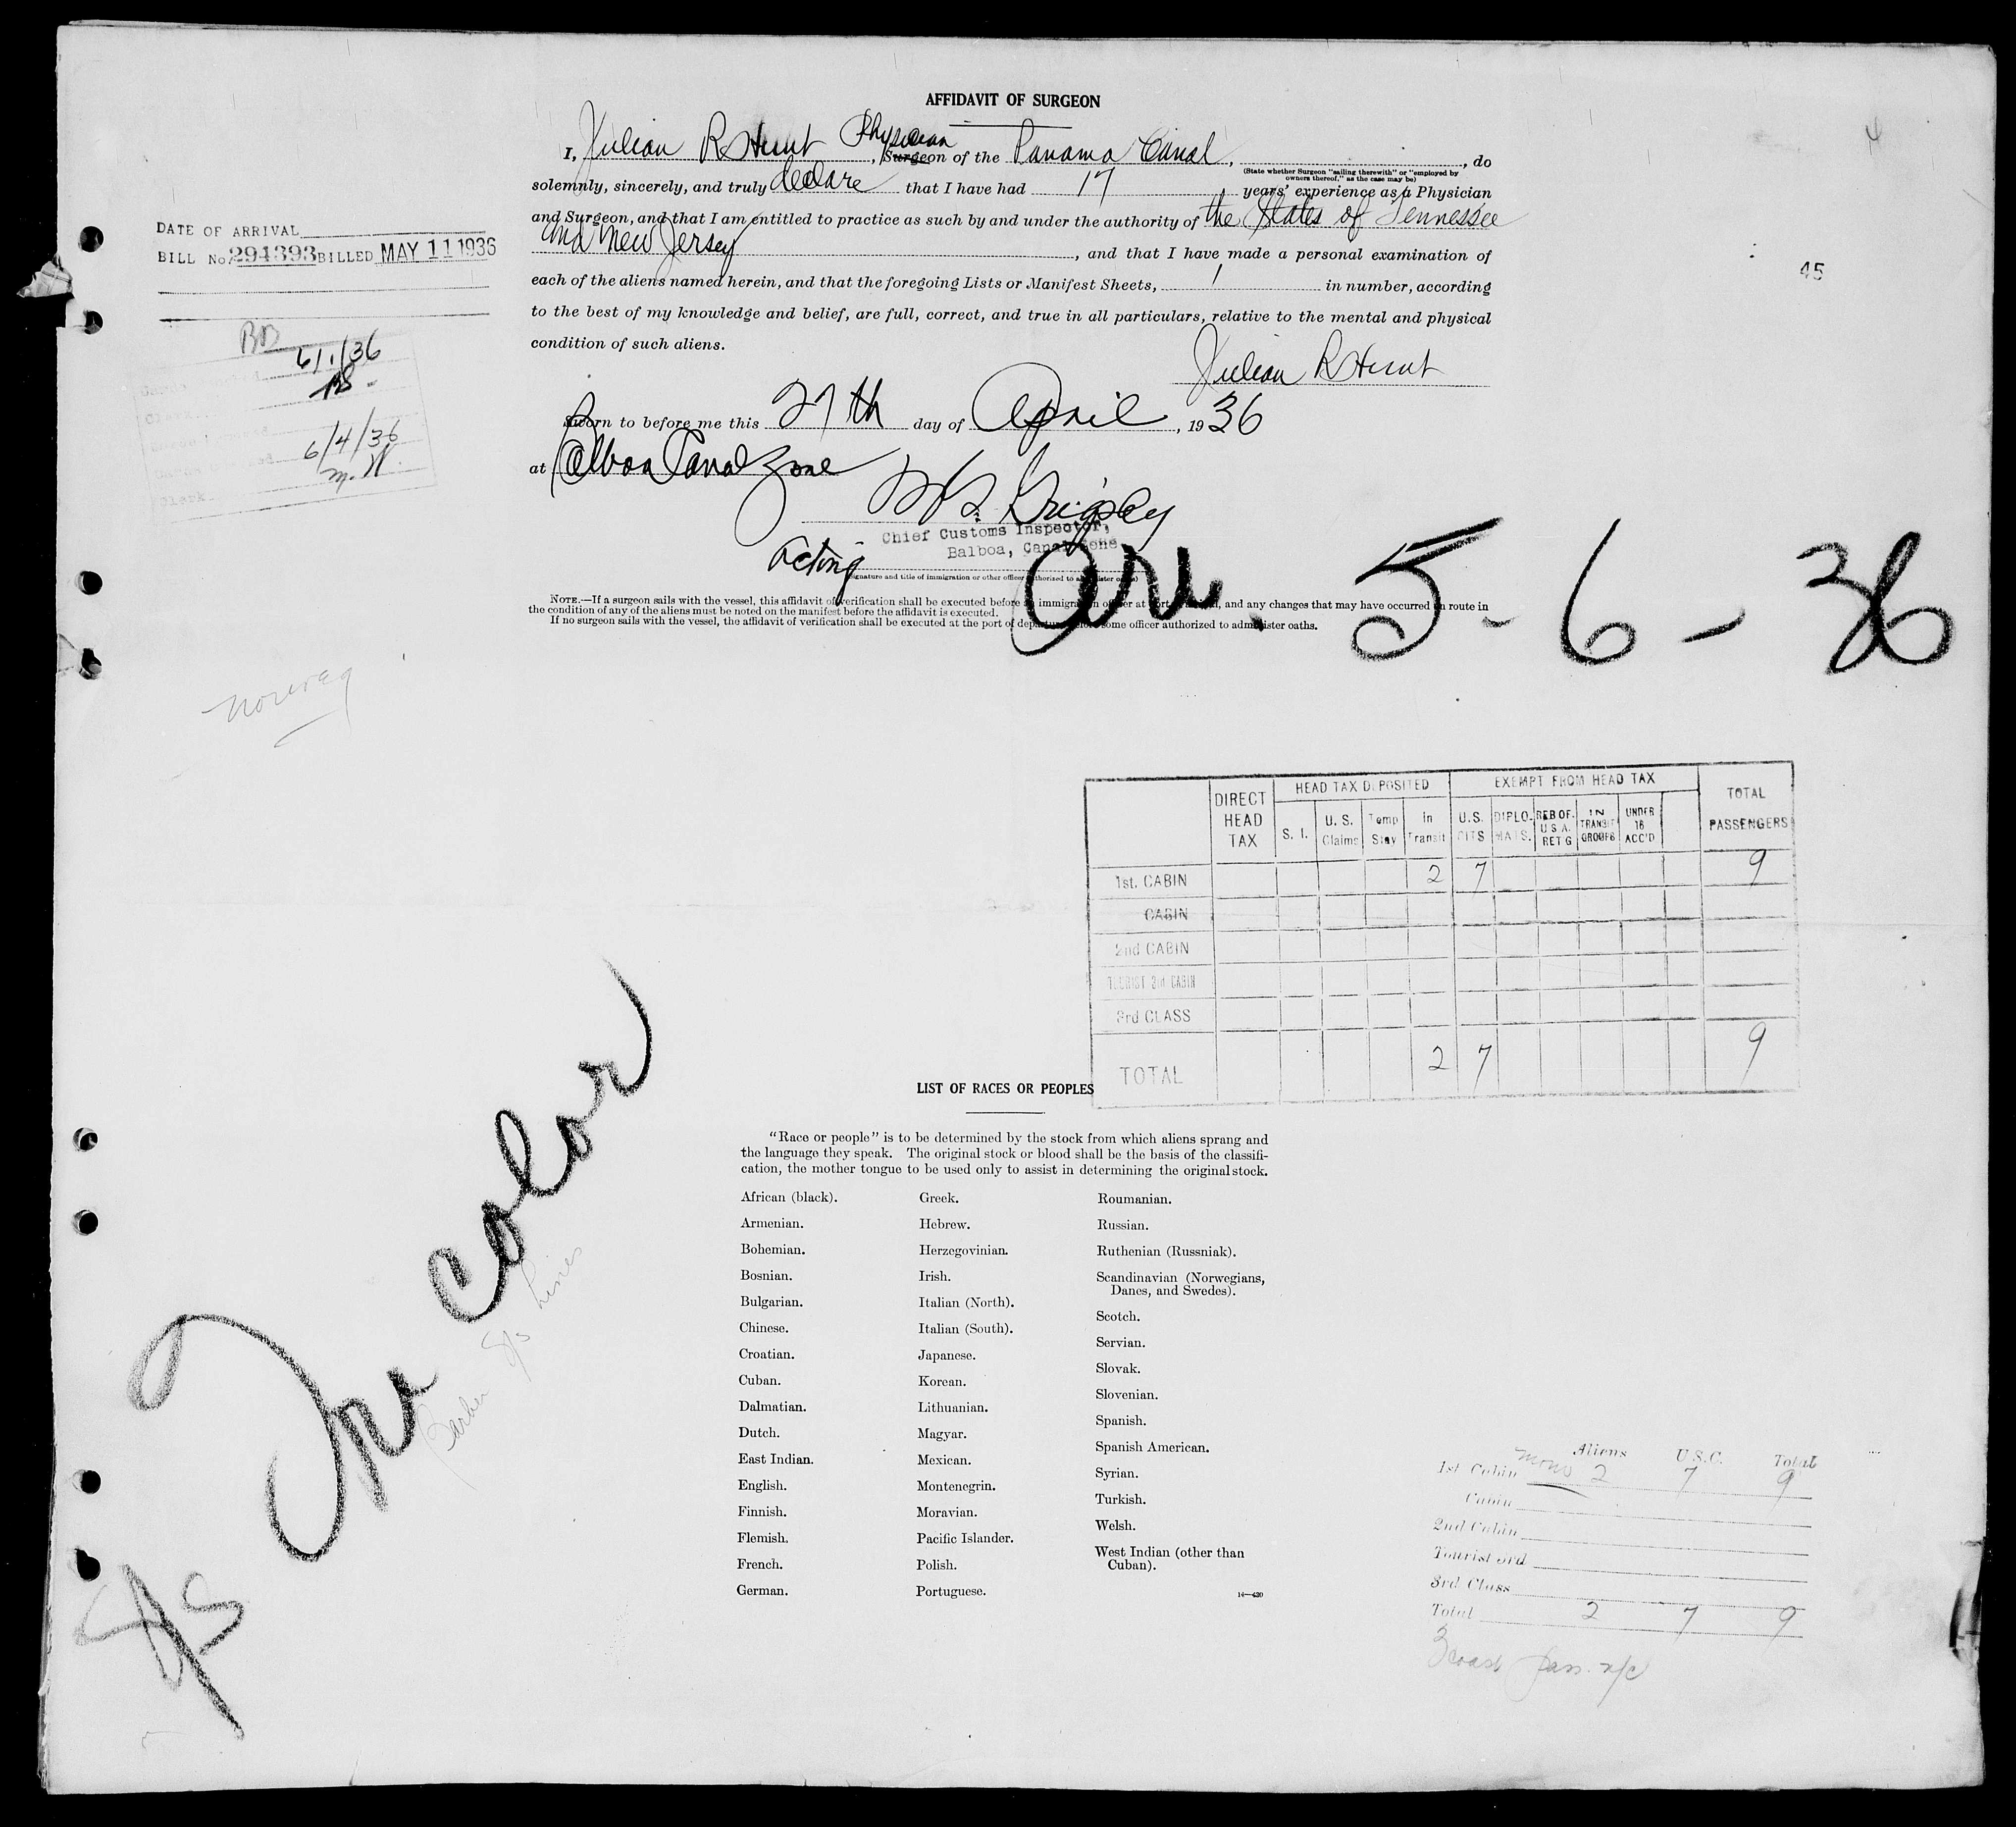 AFFIDAVIT OF SURGEON
I, Julian R Hunt, Physician Surgeon of the Panama Canal, , do
(State whether Surgeon "sailing therewith" or "employed by
owners thereof," as the case may be)
solemnly, sincerely, and truly declare that I have had 17 years' experience as a Physician
and Surgeon, and that I am entitled to practice as such by and under the authority of the States of Tennessee
and New Jersey , and that I have made a personal examination of
each of the aliens named herein, and that the foregoing Lists or Manifest Sheets, 1 in number, according
to the best of my knowledge and belief, are full, correct, and true in all particulars, relative to the mental and physical
condition of such aliens.
Julian R Hunt
Sworn to before me this 27th day of April, 1936
at Balboa Canal Zone
Grigsby
Chief Customs Inspector,
Balboa, Canal Zone
Acting
(Signature and title of immigration or other officer authorized to administer oaths)
NOTE.—If a surgeon sails with the vessel, this affidavit of verification shall be executed before immigration officer at port , and any changes that may have occurred en route in
the condition of any of the aliens must be noted on the manifest before the affidavit is executed.
If no surgeon sails with the vessel, the affidavit of verification shall be executed at the port of departure before some officer authorized to administer oaths.
DATE OF ARRIVAL
BILL No. 294393 BILLED MAY 11 1936
BB
6/1/36
6/4/36
m.W.
4
45
Arr. 5-6-36
norweg
DIRECT HEAD TAX
HEAD TAX DEPOSITED
EXEMPT FROM HEAD TAX
TOTAL PASSENGERS
S. I.
U. S. Claims
Temp Stay
In Transit
U.S. CITS
DIPLOMATS.
REB OF. U S A. RET'G
IN TRANSIT GROUPS
UNDER 16 ACC'D
1st. CABIN 2 7 9
CABIN
2nd CABIN
TOURIST 3rd CABIN
3rd CLASS
TOTAL 2 7 9
LIST OF RACES OR PEOPLES
"Race or people" is to be determined by the stock from which aliens sprang and
the language they speak. The original stock or blood shall be the basis of the classifi-
cation, the mother tongue to be used only to assist in determining the original stock.
African (black).
Armenian.
Bohemian.
Bosnian.
Bulgarian.
Chinese.
Croatian.
Cuban.
Dalmatian.
Dutch.
East Indian.
English.
Finnish.
Flemish.
French.
German.
Greek.
Hebrew.
Herzegovinian.
Irish.
Italian (North).
Italian (South).
Japanese.
Korean.
Lithuanian.
Magyar.
Mexican.
Montenegrin.
Moravian.
Pacific Islander.
Polish.
Portuguese.
Roumanian.
Russian.
Ruthenian (Russniak).
Scandinavian (Norwegians,
Danes, and Swedes).
Scotch.
Servian.
Slovak.
Slovenian.
Spanish.
Spanish American.
Syrian.
Turkish.
Welsh.
West Indian (other than
Cuban).
14—430
S/S Tricolor
Barber S/S Lines
Aliens U.S.C. Total
1st Cabin 2 7 9
Cabin
2nd Cabin
Tourist 3rd
3rd Class
Total 2 7 9
3 coast pass.